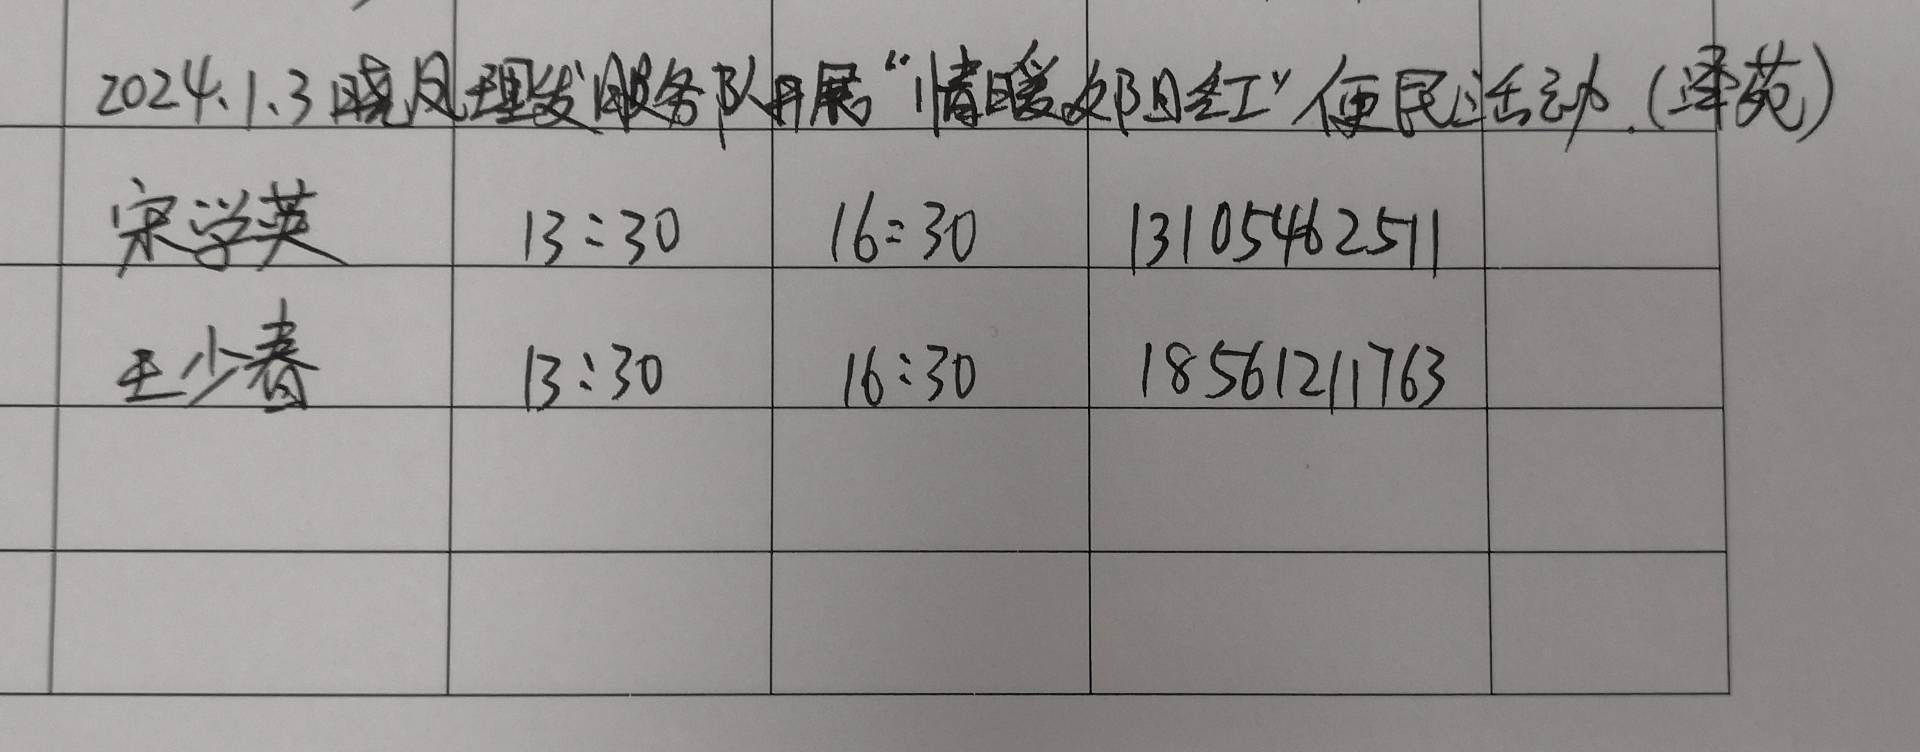 2024.1.3晓风理发服务队开展“情暖夕阳红”便民活动.(泽苑)
宋学英 13:30 16:30 13105462511
王少春 13:30 16:30 18561211763